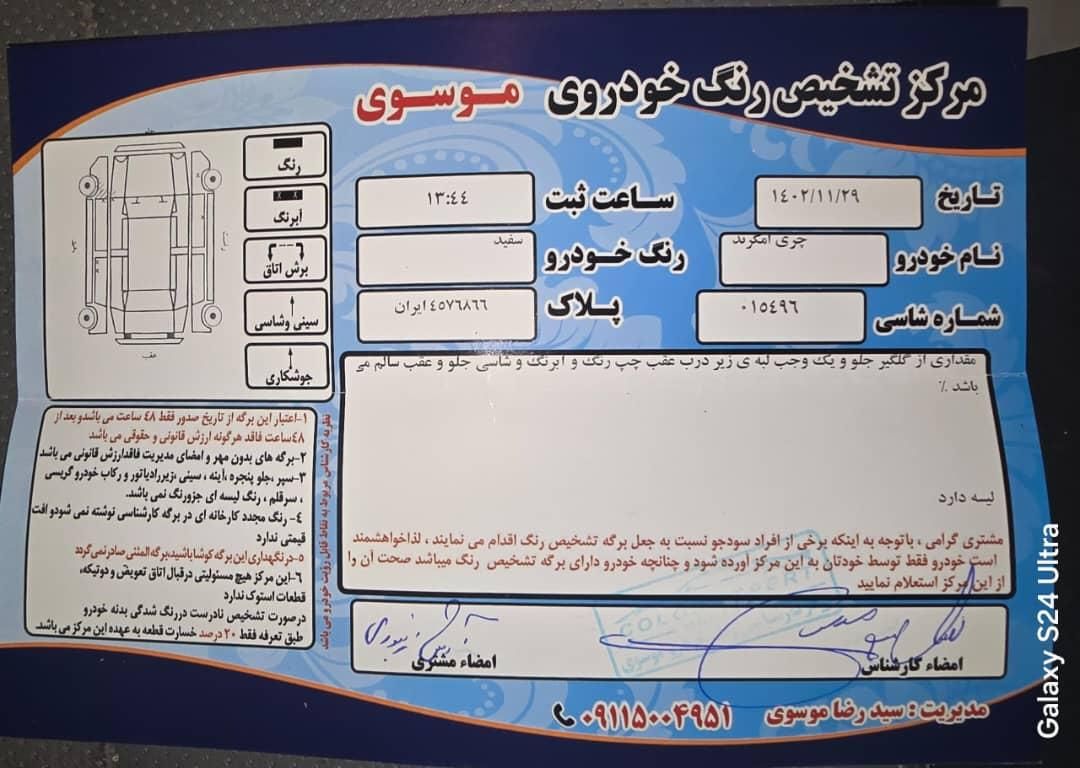 مرکز تشخیص رنگ خودروی موسوی
تاریخ ۱٤۰۲/۱۱/۲۹
ساعت ثبت ۱۳:٤٤
نام خودرو چری
رنگ خودرو سفید
شماره شاسی ۰۱٥٤۹٦
پلاک ٤٥۷٦۸٦٦ ایران
مقداری از گلگیر جلو و یک وجب لبه ی زیر درب عقب چپ رنگ و ابرنگ و شاسی جلو و عقب سالم می
باشد ٪
لیسه دارد
مشتری گرامی ، باتوجه به اینکه برخی از افراد سودجو نسبت به جعل برگه تشخیص رنگ اقدام می نمایند ، لذاخواهشمند
است خودرو فقط توسط خودتان به این مرکز آورده شود و چنانچه خودرو دارای برگه تشخیص رنگ میباشد صحت آن را
از این مرکز استعلام نمایید
امضاء کارشناس
امضاء مشتری
رنگ
آبرنگ
برش اتاق
سینی وشاسی
جوشکاری
عقب
۱-اعتبار این برگه از تاریخ صدور فقط ٤۸ ساعت می باشدو بعد از
٤۸ساعت فاقد هرگونه ارزش قانونی و حقوقی می باشد
۲-برگه های بدون مهر و امضای مدیریت فاقدارزش قانونی می باشد
۳-سپر ،جلو پنجره ،آینه ، سینی ،زیررادیاتور و رکاب خودرو گریسی
، سرقلم ، رنگ لیسه ای جزورنگ نمی باشد.
٤- رنگ مجدد کارخانه ای در برگه کارشناسی نوشته نمی شودو افت
قیمتی ندارد
٥-در نگهداری این برگه کوشا باشید،برگه المثنی صادر نمی گردد
٦-این مرکز هیچ مسئولیتی درقبال اتاق تعویض و دوتیکه،
قطعات استوک ندارد
درصورت تشخیص نادرست در رنگ شدگی بدنه خودرو
طبق تعرفه فقط ۲۰ درصد خسارت قطعه به عهده این مرکز می باشد.
نظریه کارشناس مربوط به نقاط قابل رویت خودرو می باشد
مدیریت : سید رضا موسوی ۰۹۱۱۵۰۰۴۹۵۱
Galaxy S24 Ultra